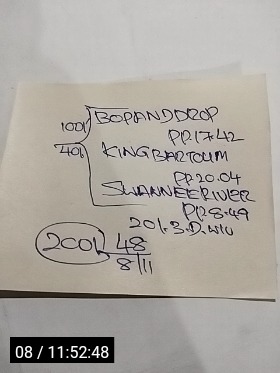 100/ BOPANDDROP
PP.17.42
40/ KINGBARTOLIM
PP.20.04
SWANNEERIVER
PP.8.49
20/.3.D.WIN
200/ 48
8/11
08 / 11:52:48